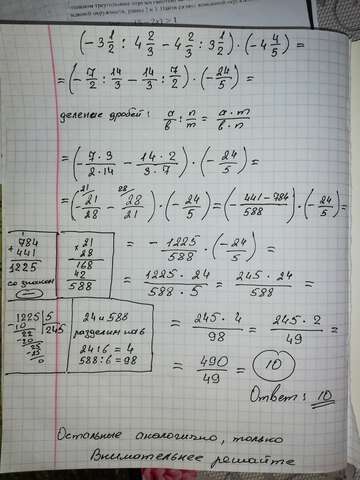 (-3 1/2 : 4 2/3 - 4 2/3 : 3 1/2) · (-4 4/5) =
= (-7/2 : 14/3 - 14/3 : 7/2) · (-24/5) =
деление дробей: a/b : n/m = a·m/b·n
= (-7·3/2·14 - 14·2/3·7) · (-24/5) =
= (-21/28 - 28/21) · (-24/5) = (-441-784/588) · (-24/5) =
21 28
784
+ 441
1225
со знаком
-
× 21
28
168
42
588
= -1225/588 · (-24/5) =
= 1225·24/588·5 = 245·24/588 =
1225 | 5
-10 245
22
-20
25
-25
0
24 и 588
разделим на 6
24:6 = 4
588:6 = 98
= 245·4/98 = 245·2/49 =
= 490/49 = 10
Ответ: 10
Остальные аналогично, только
Внимательнее решайте